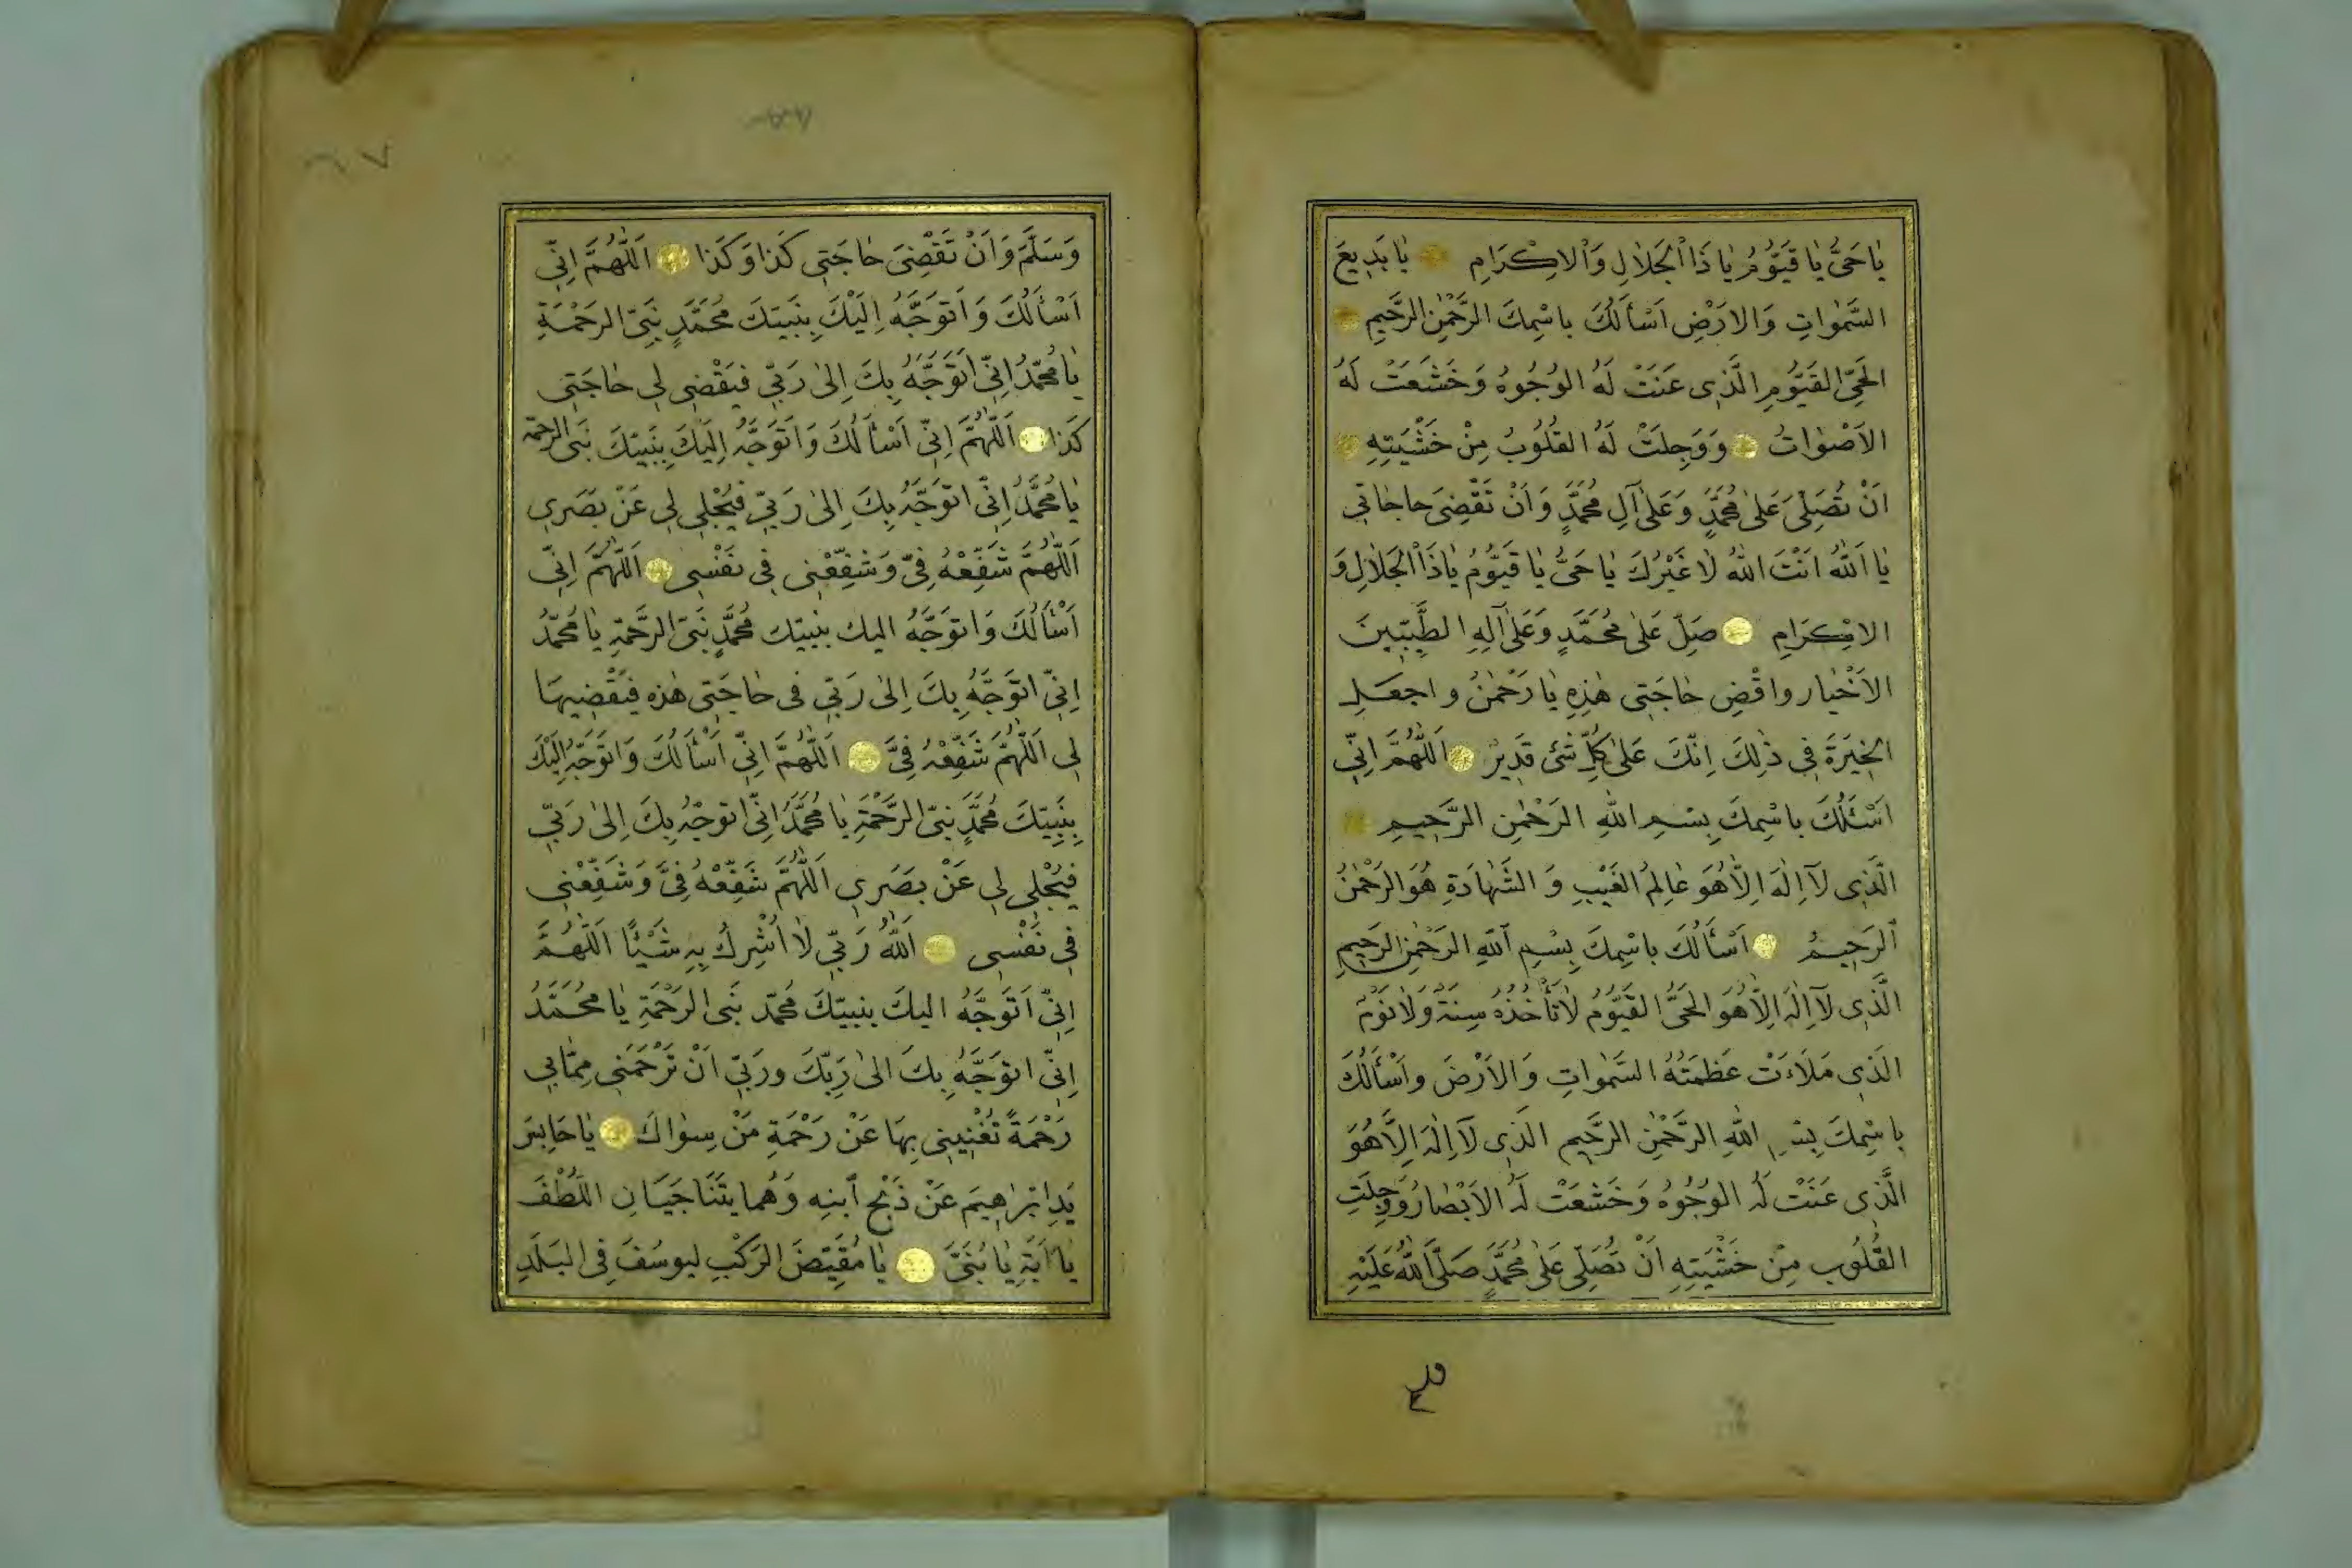 يَا حَىُّ يَا قَيُّومُ يَا ذَا الْجَلَالِ وَالْاِكْرَامِ يَا بَدِيعَ
السَّمٰوَاتِ وَالاَرْضِ اَسْأَلُكَ بِاسْمِكَ الرَّحْمٰنِ الرَّحِيمِ
الحَىِّ القَيُّومِ الَّذِى عَنَتْ لَهُ الوُجُوهُ وَخَشَعَتْ لَهُ
الاَصْوَاتُ وَوَجِلَتْ لَهُ القُلُوبُ مِنْ خَشْيَتِهِ
اَنْ تُصَلِّىَ عَلىٰ مُحَمَّدٍ وَعَلىٰ آلِ مُحَمَّدٍ وَاَنْ تَقْضِىَ حَاجَاتِي
يَا اَللّٰهُ اَنْتَ اللّٰهُ لَا غَيْرُكَ يَا حَىُّ يَا قَيُّومُ يَا ذَا الْجَلَالِ وَ
الاِكْرَامِ صَلِّ عَلىٰ مُحَمَّدٍ وَعَلىٰ آلِهِ الطَّيِّبِينَ
الاَخْيَار واقْضِ حَاجَتِى هٰذِهِ يَا رَحْمٰنُ واجعَلِ
الخِيَرَةَ فِي ذٰلِكَ اِنَّكَ عَلىٰ كُلِّ شَئ قَدِيرٌ اَللّٰهُمَّ اِنِّي
اَسْئَلُكَ بِاسْمِكَ بِسْمِ اللّٰهِ الرَحْمٰنِ الرَّحِيمِ
الَّذِى لَآ اِلٰهَ اِلَّا هُوَ عَالِمُ الغَيْبِ وَ الشَّهَادَةِ هُوَ الرَحْمٰنُ
اَلرَحِيمُ اَسْأَلُكَ بِاسْمِكَ بِسْمِ اَللّٰهِ الرَحْمٰنِ الرَحِيمِ
الَّذِى لَآ اِلٰهَ اِلَّا هُوَ الحَىُّ القَيُّومُ لَا تَأْخُذُهُ سِنَةٌ وَلَا نَوْمٌ
الَذِى مَلَاَتْ عَظَمَتُهُ السَّمٰوَاتِ وَالاَرْضَ وَاَسْأَلُكَ
بِاسْمِكَ بِسْمِ اللّٰهِ الرَّحْمٰنِ الرَّحِيم الَذِى لَآ اِلٰهَ اِلَّا هُوَ
الَّذِى عَنَتْ لَهُ الوُجُوهُ وَخَشَعَتْ لَهُ الاَبْصَارُ وَوَجِلَتِ
القُلُوب مِنْ خَشْيَتِهِ اَنْ تُصَلِّىَ عَلىٰ مُحَمَّدٍ صَلَّى اللّٰهُ عَلَيْهِ
وَسَلَّمَ وَاَنْ تَقْضِىَ حَاجَتِي كَذَا وَكَذَا اَللّٰهُمَّ اِنِّي
اَسْأَلُكَ وَاَتَوَجَّهُ اِلَيْكَ بِنَبِيِّكَ مُحَمَّدٍ نَبِىِّ الرَحْمَةِ
يَا مُحَمَّدُ اِنِّي اَتَوَجَّهُ بِكَ اِلىٰ رَبِّي فَيَقْضِى لِي حَاجَتِي
كَذَا اَللّٰهُمَّ اِنِّي اَسْأَلُكَ وَاَتَوَجَّهُ اِلَيْكَ بِنَبِيِّكَ نَبِى الرحمة
يَا مُحَمَّدُ اِنِّي اَتَوَجَّهُ بِكَ اِلىٰ رَبِّي فَيُجْلِي لِي عَنْ بَصَرِي
اَللّٰهُمَّ شَفِّعْهُ فِىَّ وَشَفِّعْنِي فِي نَفْسِي اَللّٰهُمَّ اِنِّي
اَسْأَلُكَ وَاَتوَجَّهُ اليك بنبيّك مُحَمَّدٍ نَبِىِّ الرَّحْمَةِ يَا مُحَمَّدُ
اِنِّي اتوَجَّهُ بِكَ اِلىٰ رَبِّي فى حَاجَتِى هٰذه فيَقْضِيهَا
لِي اَللّٰهُمَّ شَفِّعْهُ فِىَّ اَللّٰهُمَّ اِنِّي اَسْأَلُكَ وَاَتَوَجَّهُ اِلَيْكَ
بِنَبِيِّكَ مُحَمَّدٍ نَبِىِّ الرَّحْمَةِ يَا مُحَمَّدُ اِنِّي اتوجّهُ بِكَ اِلىٰ رَبِّي
فَيُجْلِى لِي عَنْ بَصَرِي اَللّٰهُمَّ شَفِّعْهُ فِىَّ وَشَفِّعْنِي
فِي نَفْسِي اَللّٰهُ رَبِّي لَا اُشْرِكُ بِهِ شَيْئًا اَللّٰهُمَّ
اِنِّي اَتَوَجَّهُ اليكَ بِنبيّكَ مُحَمَّد نَبِى الرَحْمَةِ يَا مُحَمَّدُ
اِنِّي اتوَجَّهُ بِكَ الىٰ رَبِّكَ وَرَبِّي اَنْ تَرْحَمَنِي مِمَّا بِي
رَحْمَةً تُغْنِينِي بِهَا عَنْ رَحْمَةِ مَنْ سِوَاكَ يَا حَابِسَ
يَدِ اِبْرٰاهِيمَ عَنْ ذَبْحِ ابنِهِ وَهُما يَتَنَاجَيَانِ اللُّطْفَ
يَا اَبَةِ يَا بُنَىَّ يَا مُقَيِّضَ الرَكْبِ لِيوسُفَ فِى البَلَدِ